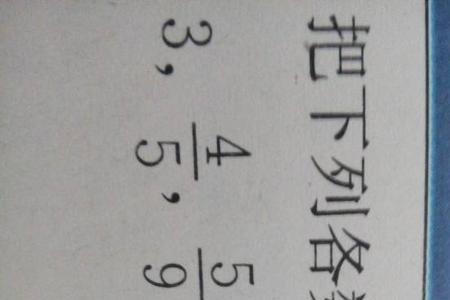 把下列各
3, 4/5, 5/9